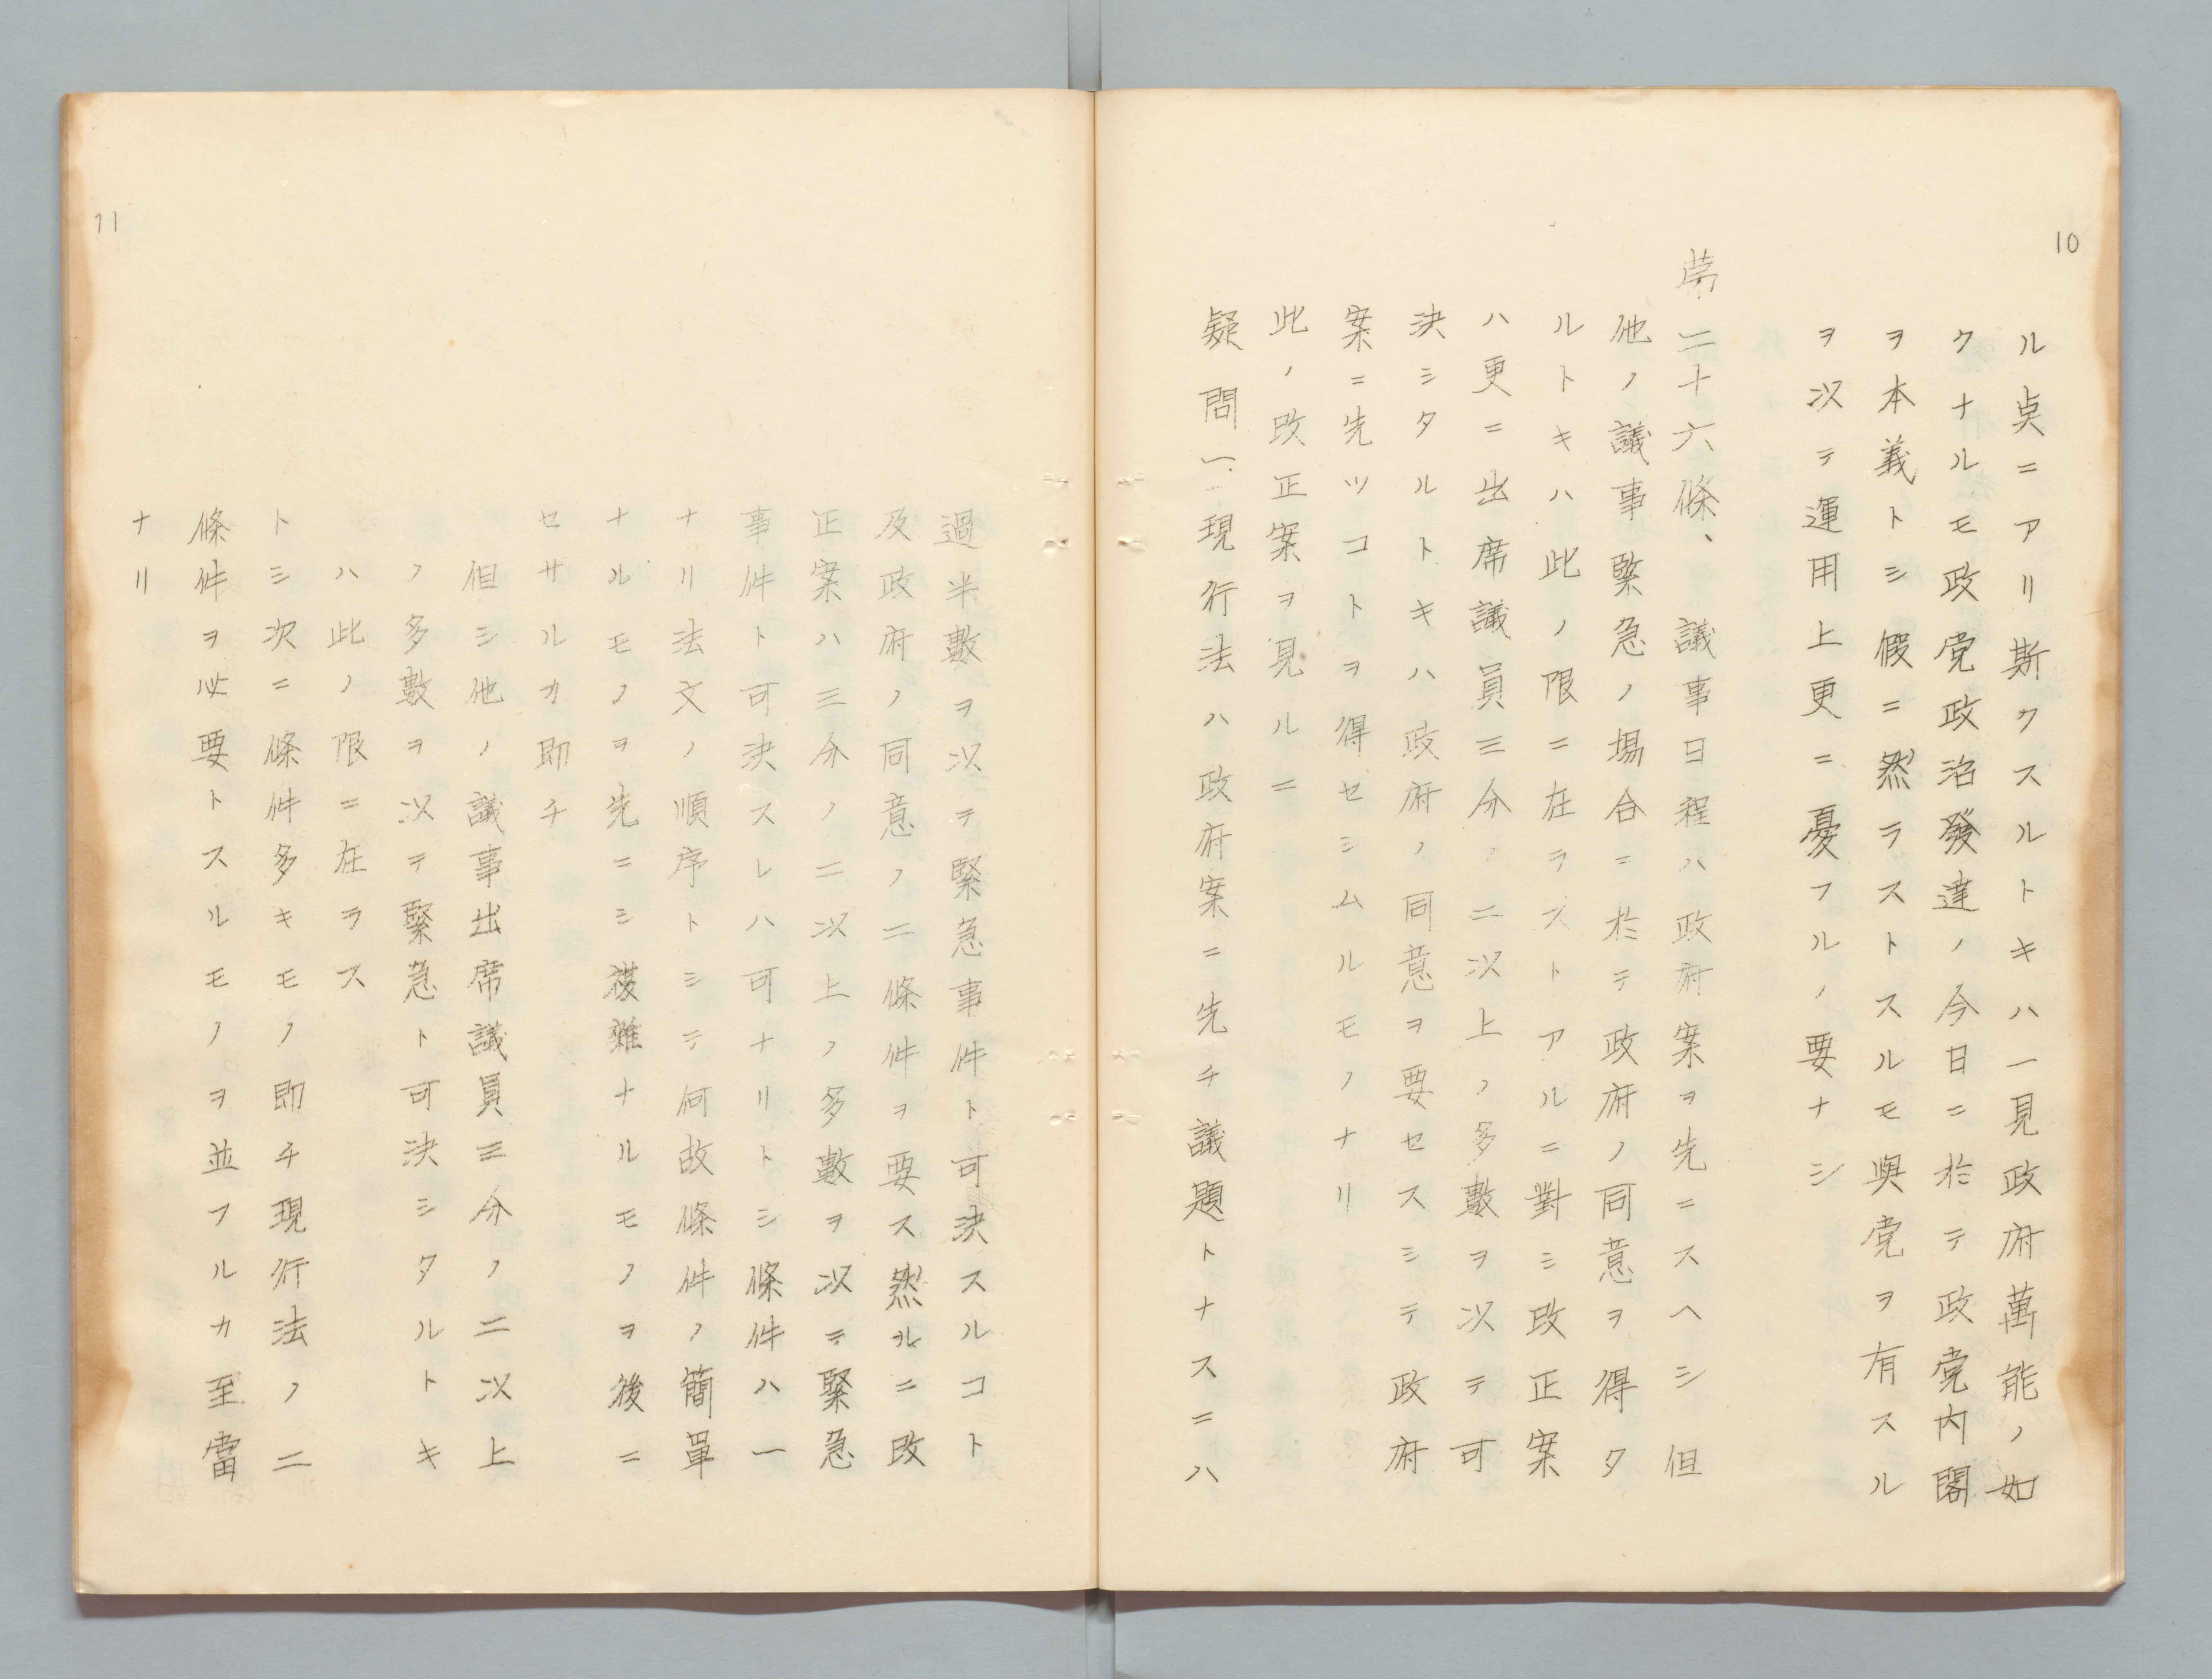 10
ル点ニアリ斯クスルトキハ一見政府萬能ノ如
クナルモ政党政治發達ノ今日ニ於テ政党内閣
ヲ本義トシ假ニ然ラストスルモ與党ヲ有スル
ヲ以テ運用上更ニ憂フルノ要ナシ
第二十六條、議事日程ハ政府案ヲ先ニスヘシ但
他ノ議事緊急ノ場合ニ於テ政府ノ同意ヲ得タ
ルトキハ此ノ限ニ在ラストアルニ對シ改正案
ハ更ニ出席議員三分ノ二以上ノ多數ヲ以テ可
決シタルトキハ政府ノ同意ヲ要セスシテ政府
案ニ先ツコトヲ得セシムルモノナリ
此ノ改正案ヲ見ルニ
疑問一、現行法ハ政府案ニ先チ議題トナスニハ
11
過半數ヲ以テ緊急事件ト可決スルコト
及政府ノ同意ノ二條件ヲ要ス然ルニ改
正案ハ三分ノ二以上ノ多數ヲ以テ緊急
事件ト可決スレハ可ナリトシ條件ハ一
ナリ法文ノ順序トシテ何故條件ノ簡單
ナルモノヲ先ニシ複雜ナルモノヲ後ニ
セサルカ即チ
但シ他ノ議事出席議員三分ノ二以上
ノ多數ヲ以テ緊急ト可決シタルトキ
ハ此ノ限ニ在ラス
トシ次ニ條件多キモノ即チ現行法ノ二
條件ヲ必要トスルモノヲ並フルカ至當
ナリ